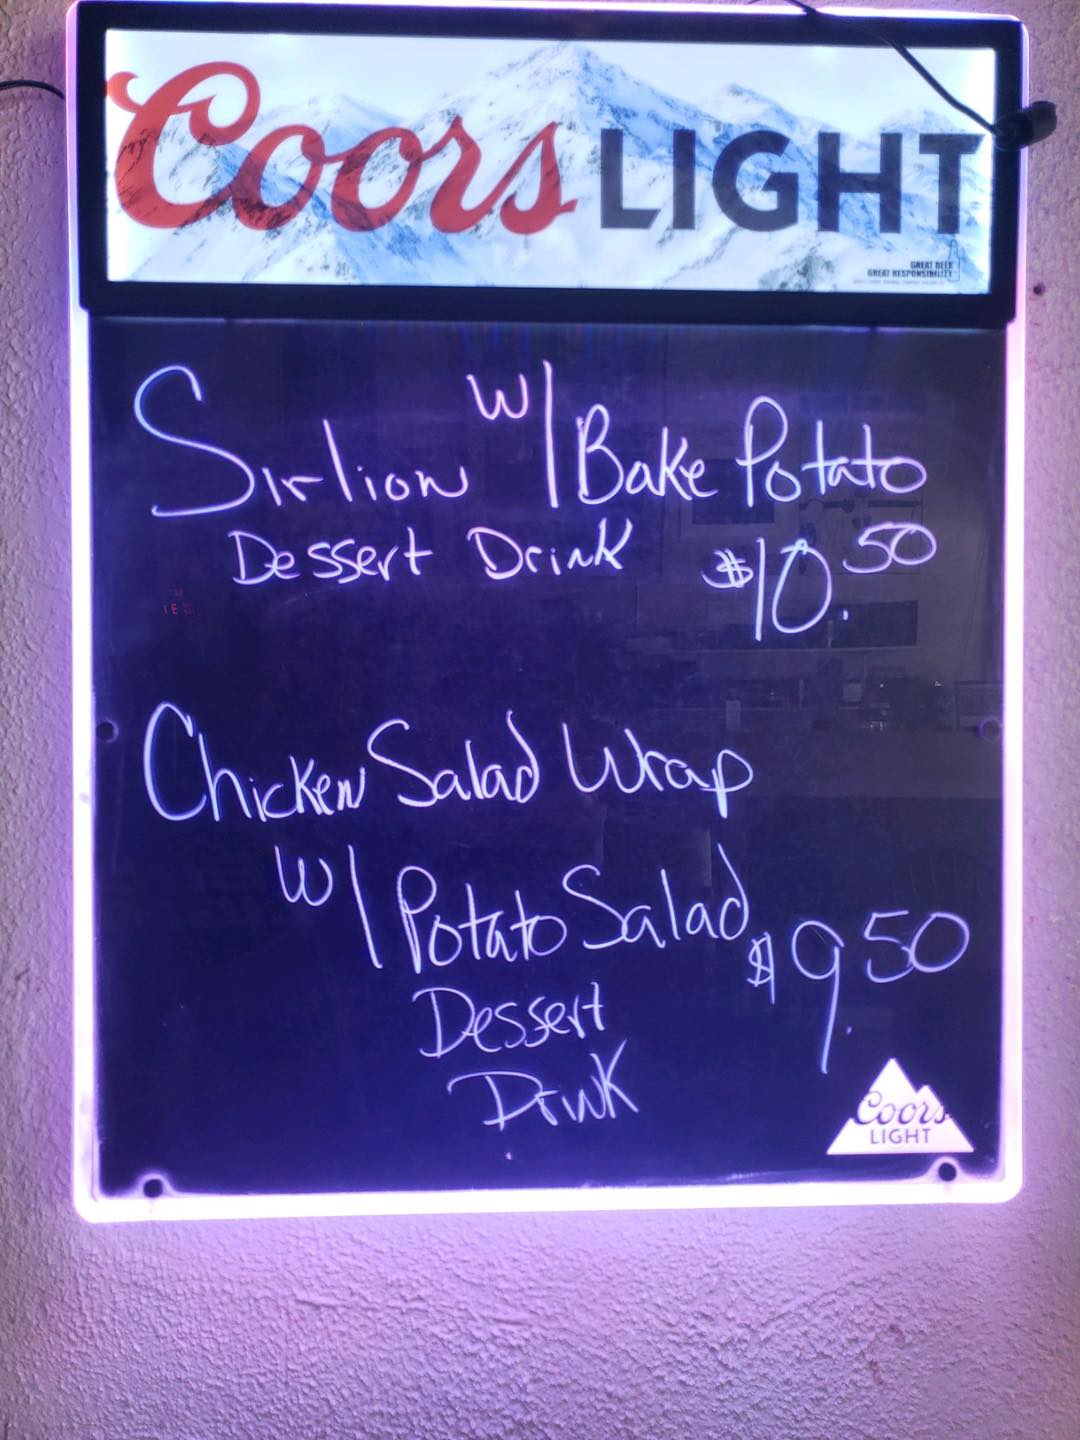 Coors LIGHT
GREAT BEER
GREAT RESPONSIBILITY
Sirlion w/ Bake Potato
Dessert Drink $10.50
Chicken Salad Wrap
w/ Potato Salad $9.50
Dessert
Drink
Coors
LIGHT